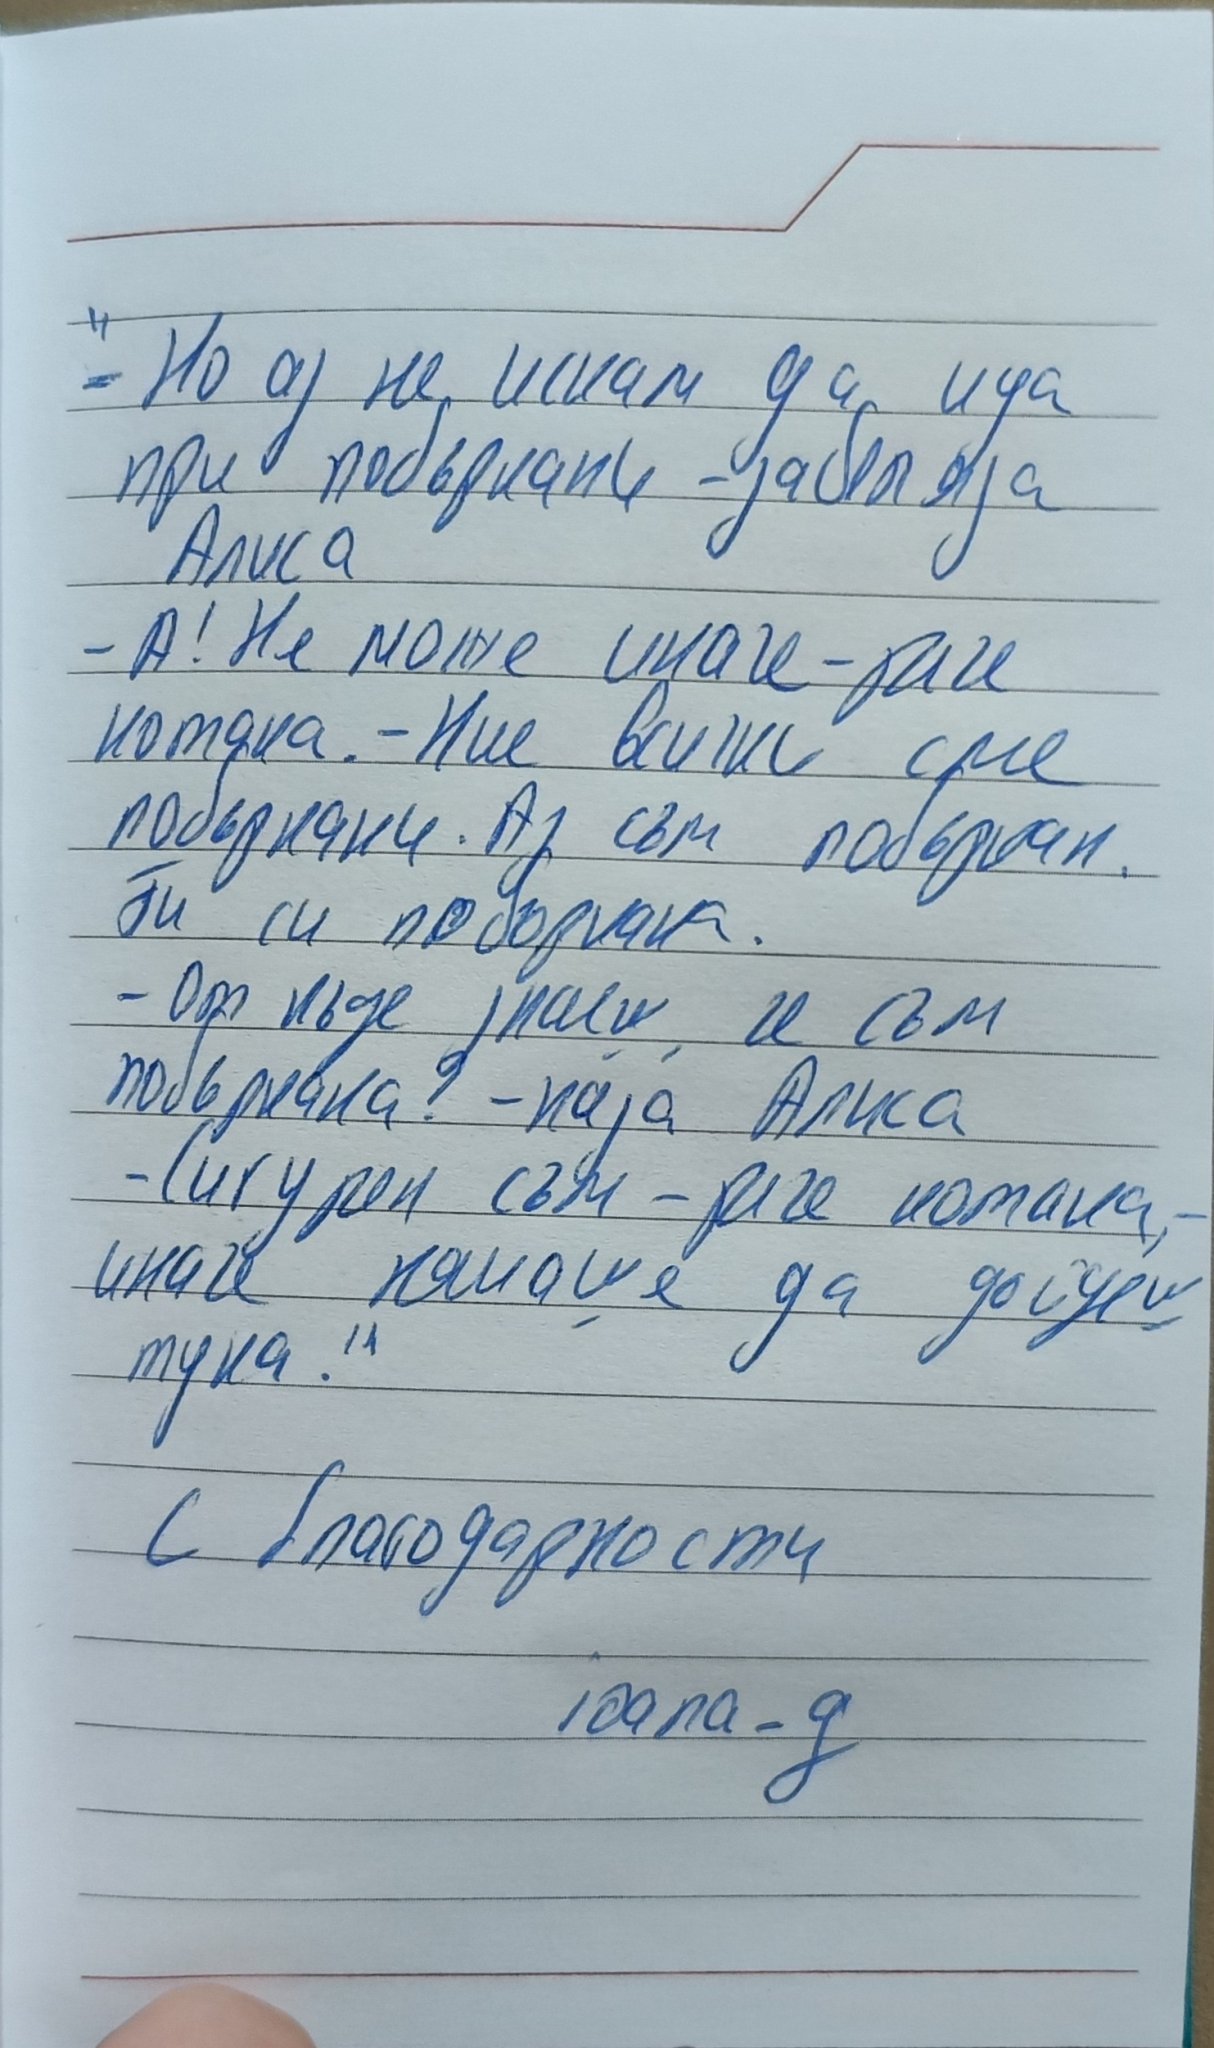 "- Но аз не искам да ида
при побъркани - забеляза
Алиса
- А! Не може иначе - рече
котака. - Ние всички сме
побъркани. Аз съм побъркан.
Ти си побъркана.
- От къде знаеш, че съм
побъркана? - каза Алиса
- Сигурен съм - рече котака, -
иначе нямаше да дойдеш
тука."
С благодарности